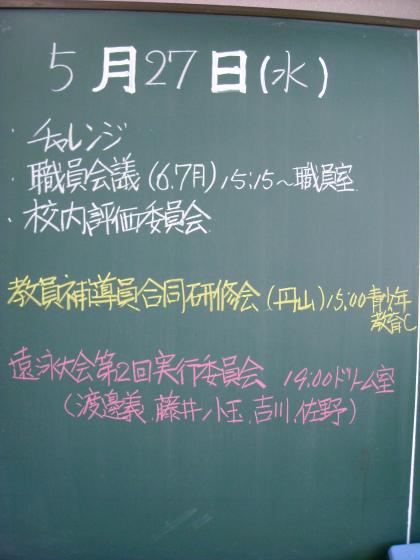 5月27日(水)
・チャレンジ
・職員会議(6.7月)15:15〜職員室
・校内評価委員会
教員補導員合同研修会(円山)15:00青少年
教育C
遠泳大会第2回実行委員会 14:00ドリーム室
(渡邊義、藤井、小玉、吉川、佐野)